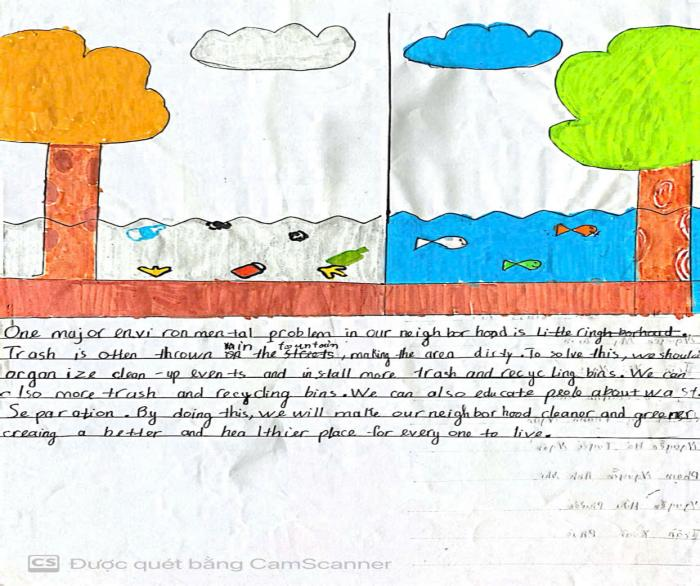 One major environmental problem in our neighborhood is Littering
fountain
Trash is often thrown in the streets, making the area dirty. To solve this, we should
organize clean-up events and install more trash and recycling bins. We can
also more trash and recycling bins. We can also educate peole about wast
Separation. By doing this, we will make our neighborhood cleaner and greener
creaing a better and healthier place for every one to live.
CS Được quét bằng CamScanner